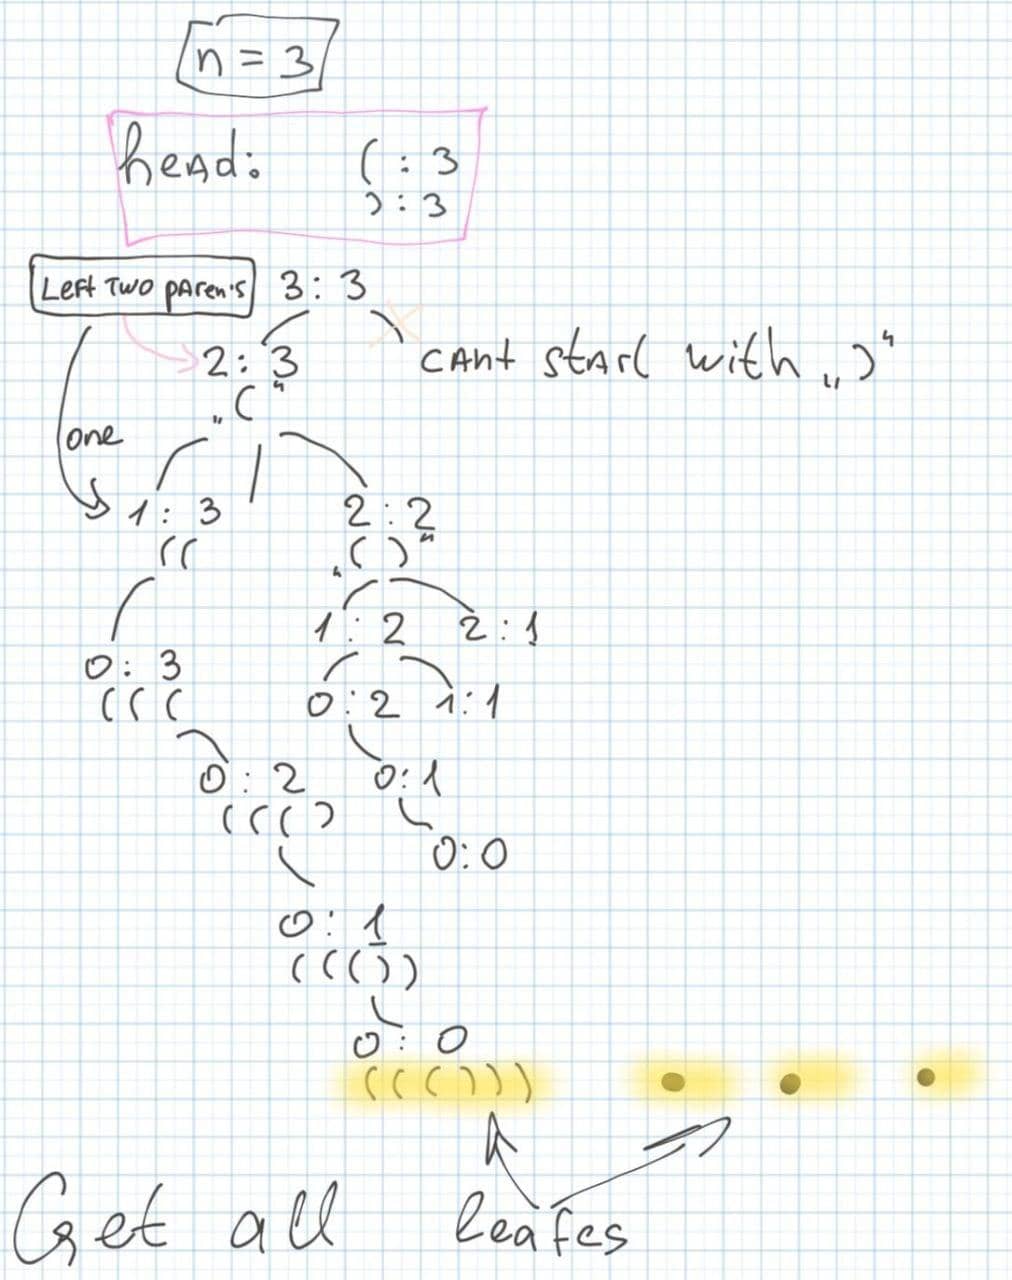 n = 3
head: ( : 3
) : 3
Left Two pAren's 3 : 3
2 : 3 CAnt stAr( with „)“
„(“
one
1 : 3 2 : 2
(( „()“
1 : 2 2 : 1
0 : 3
((( 0 : 2 1 : 1
0 : 2 0 : 1
((()
0 : 0
0 : 1
((())
0 : 0
((()))
Get all leafes